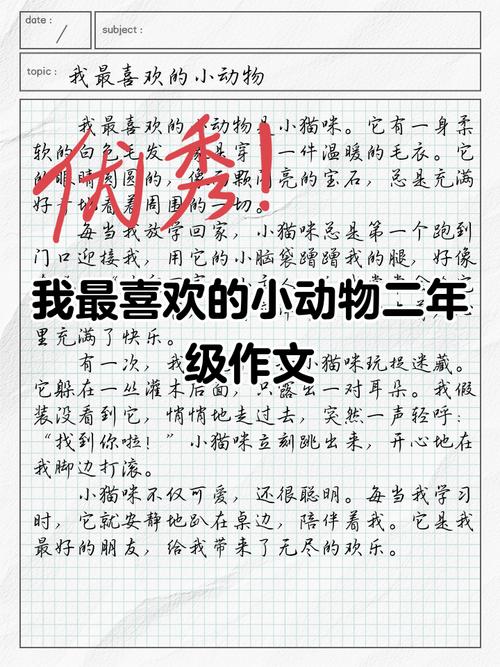 date :
subject :
topic : 我最喜欢的小动物
我最喜欢的 动物是小猫咪。它有一身柔
软的白色毛发 是穿 一件温暖的毛衣。它
的眼睛圆圆的，像 颗闪亮的宝石，总是充满
好 地看着周围的一切。
优秀！
每当我放学回家，小猫咪总是第一个跑到
门口迎接我，用它的小脑袋蹭蹭我的腿，好像
我最喜欢的小动物二年
级作文
里充满了快乐。
有一次，我 小猫咪玩捉迷藏。
它躲在一丛灌木后面，只露出一对耳朵。我假
装没看到它，悄悄地走过去，突然一声轻呼：
“找到你啦！”小猫咪立刻跳出来，开心地在
我脚边打滚。
小猫咪不仅可爱，还很聪明。每当我学习
时，它就安静地趴在桌边，陪伴着我。它是我
最好的朋友，给我带来了无尽的欢乐。